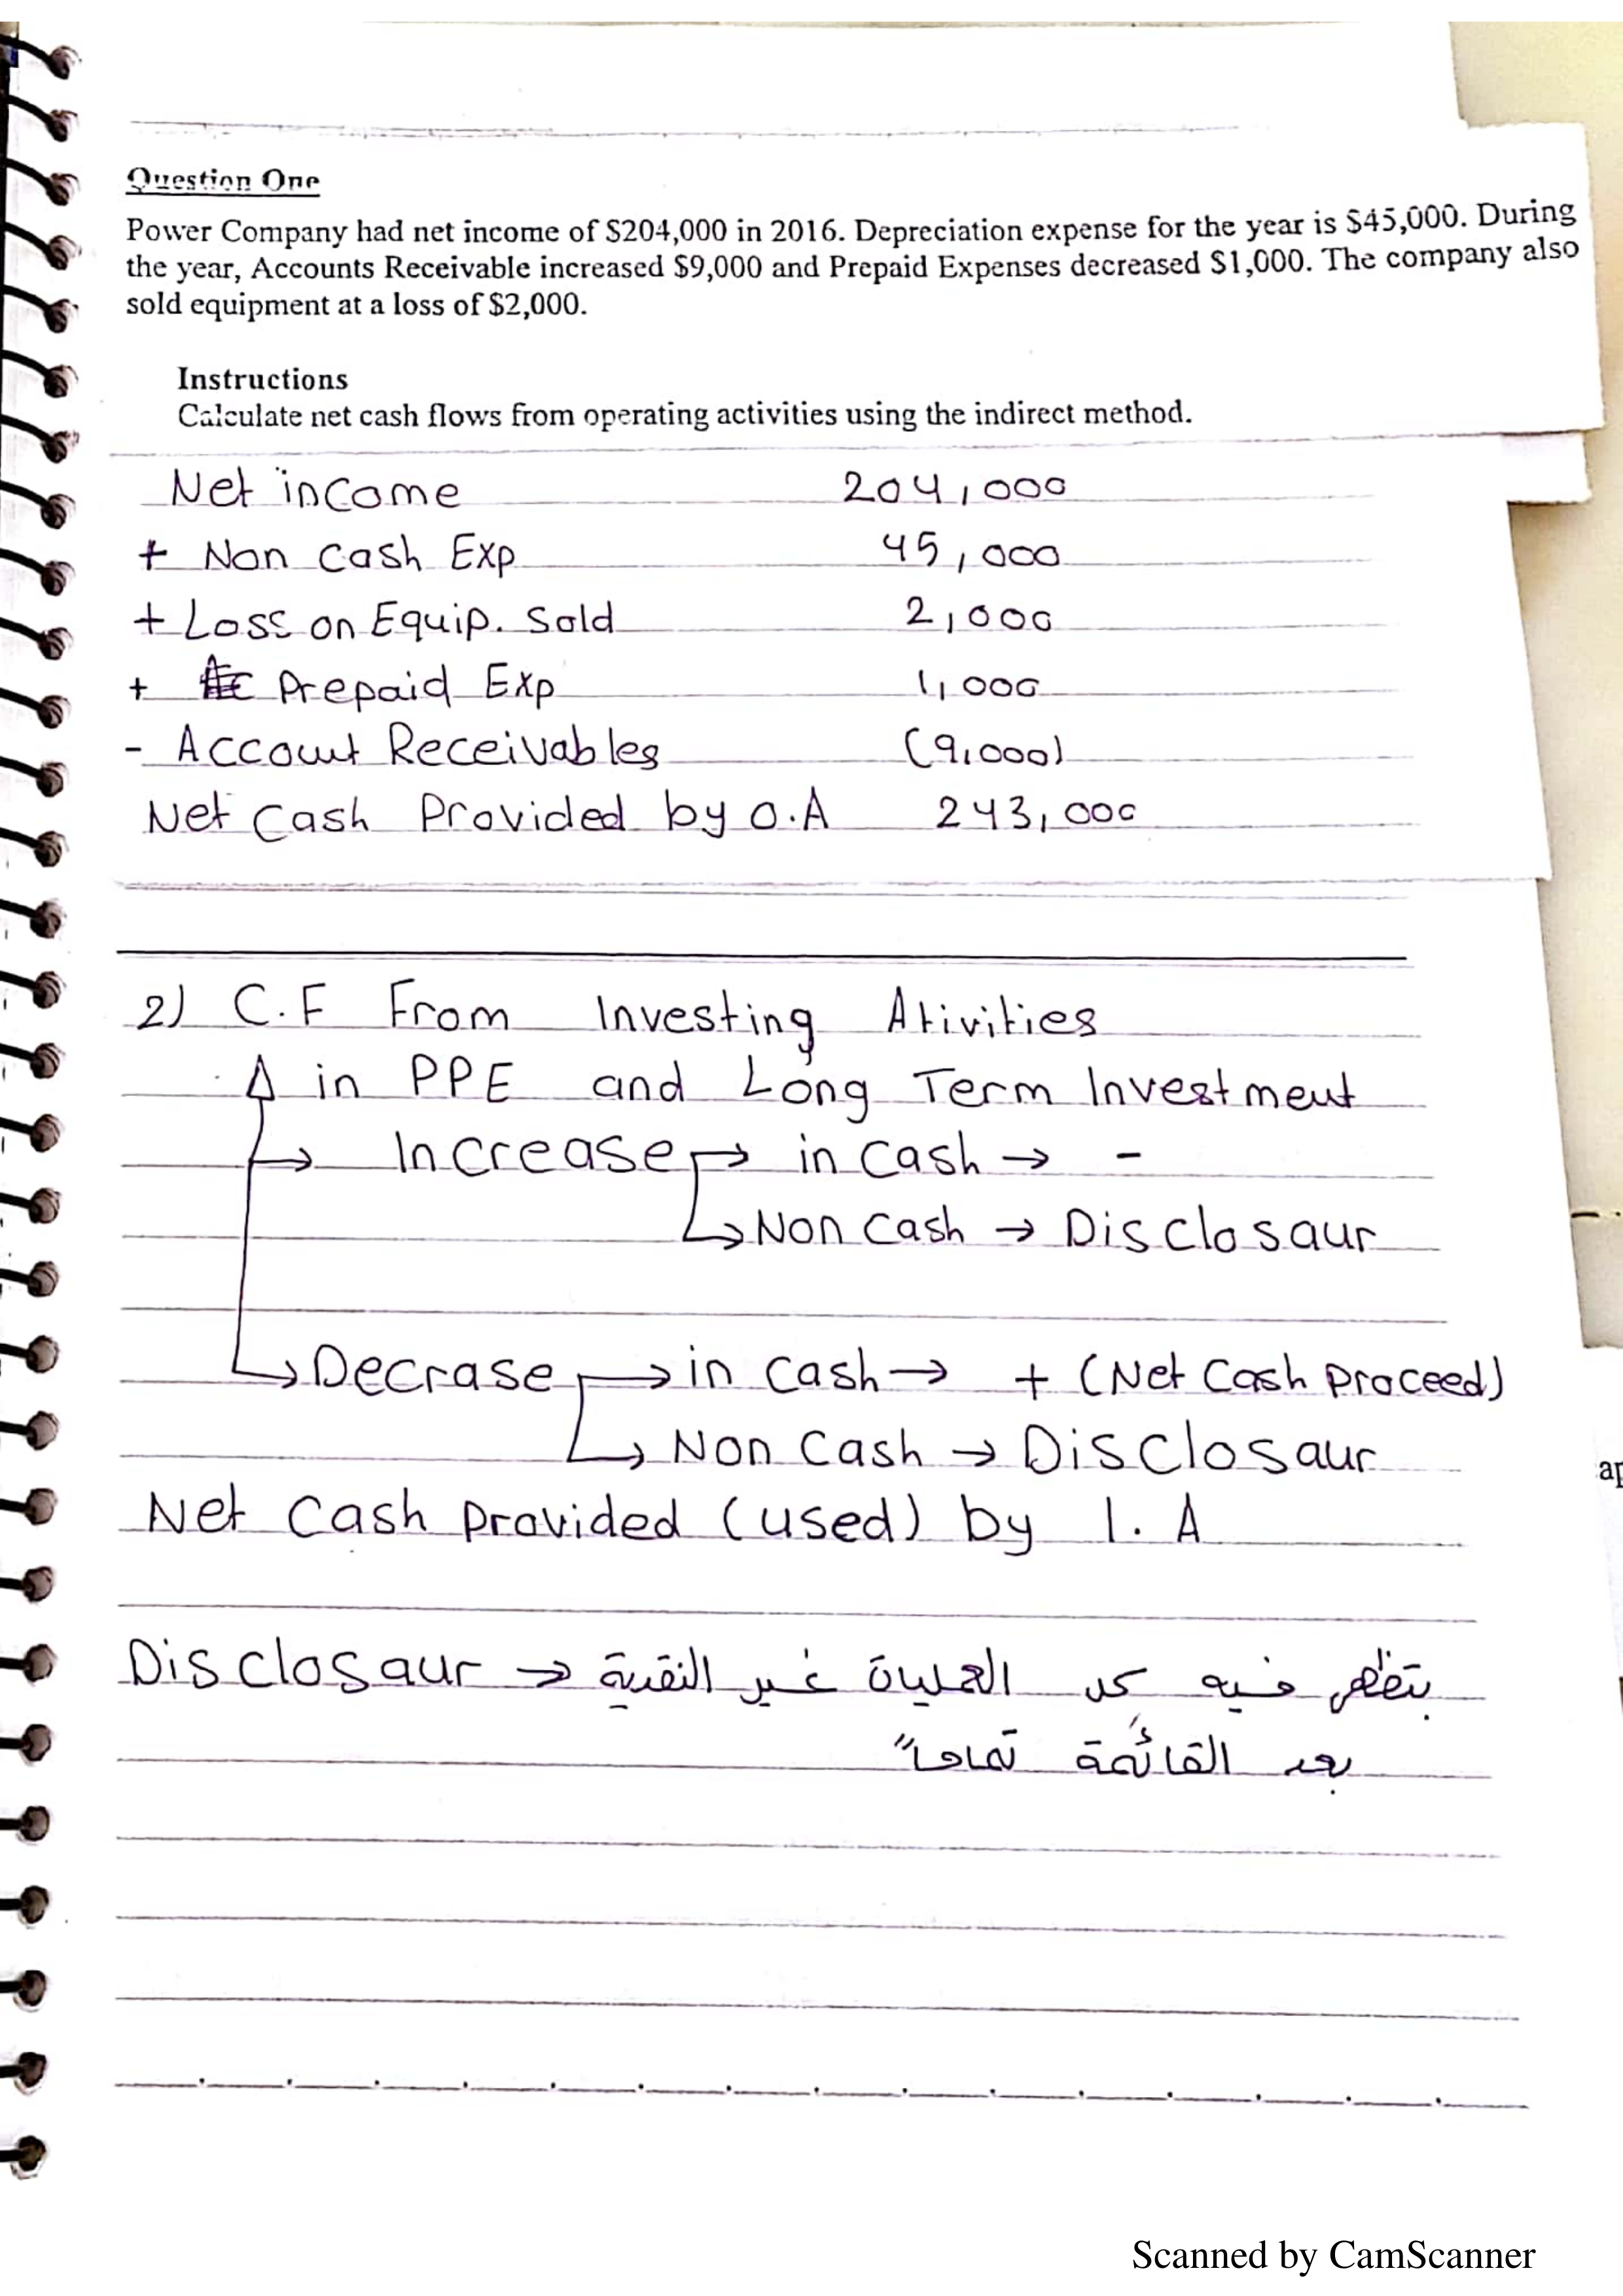 Question One
Power Company had net income of $204,000 in 2016. Depreciation expense for the year is $45,000. During
the year, Accounts Receivable increased $9,000 and Prepaid Expenses decreased $1,000. The company also
sold equipment at a loss of $2,000.
Instructions
Calculate net cash flows from operating activities using the indirect method.
Net income 204,000
+ Non Cash Exp 45,000
+ Loss on Equip. Sold 2,000
+ Prepaid Exp 1,000
- Account Receivables (9,000)
Net Cash Provided by O.A 243,000
2) C.F From Investing Ativities
Δ in PPE and Long Term Investment
→ Increase → in Cash → -
↳ Non Cash → Disclosaur
↳ Decrase → in Cash → + (Net Cash Proceed)
↳ Non Cash → Disclosaur
Net Cash Provided (used) by I.A
Disclosaur → بتظهر فيه كل العمليات غير النقدية
بعد القائمة تماماً
ap
Scanned by CamScanner